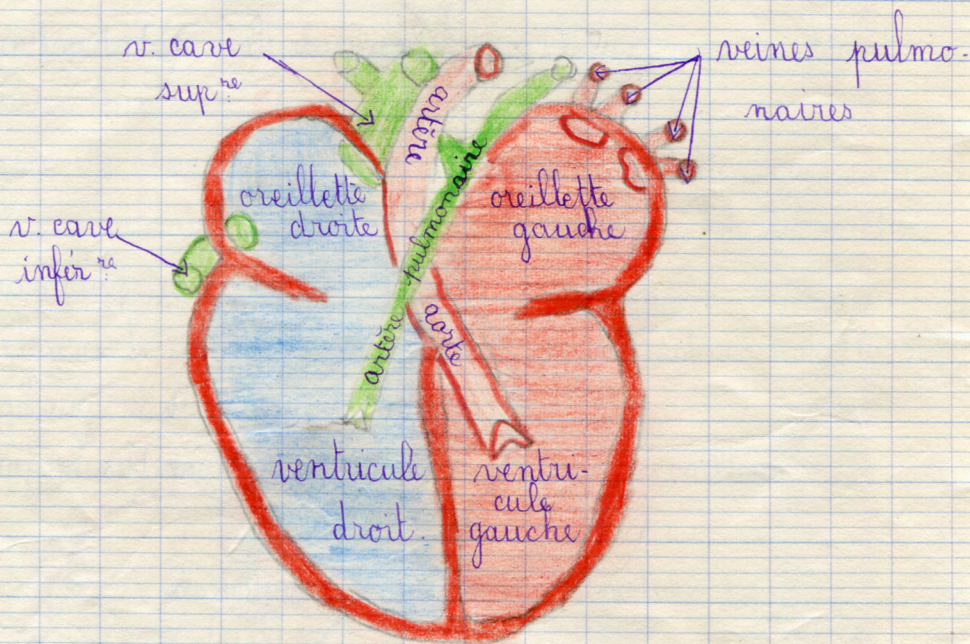 v. cave
sup.re
veines pulmo-
naires
artère
pulmonaire
oreillette
droite
oreillette
gauche
v. cave
infér.re
aorte
artère
ventricule
droit.
ventri-
cule
gauche